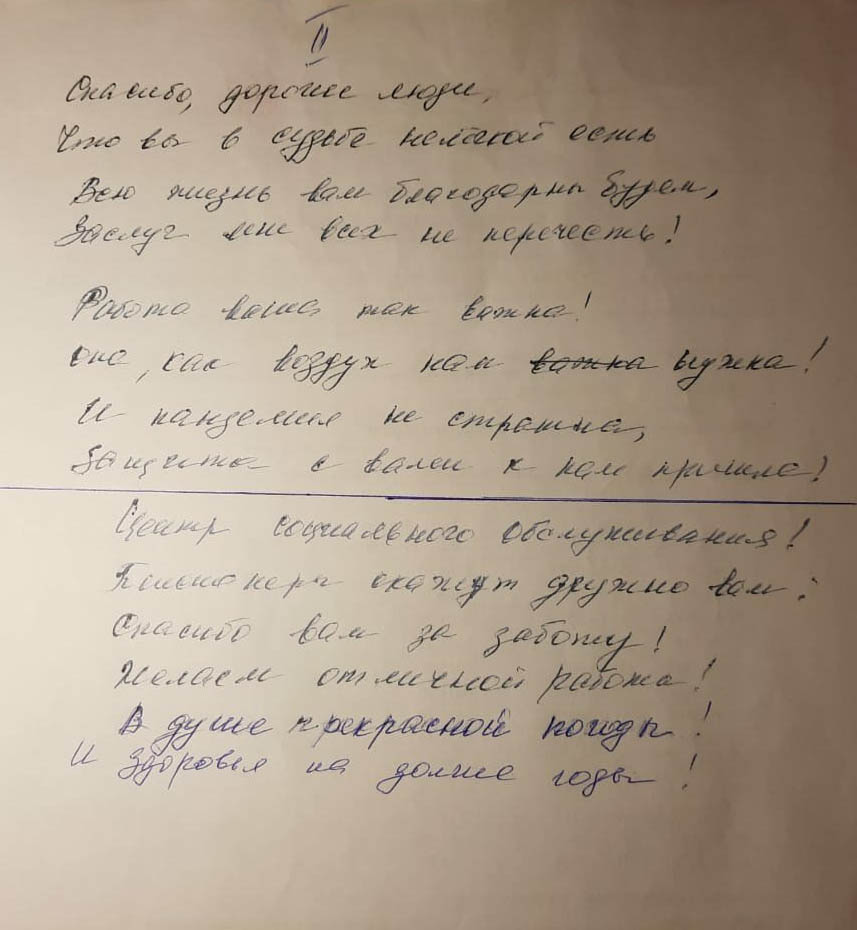 II
Спасибо, дорогие люди,
Что вы в судьбе нелёгкой есть
Всю жизнь вам благодарны будем,
Заслуг мне всех не перечесть!
Работа ваша так важна!
она, как воздух нам важна нужна!
И пандемия не страшна,
Защита с вами к нам пришла!
Центр социального обслуживания!
Пенсионеры скажут дружно вам:
Спасибо вам за заботу!
Желаем отличной работы!
В душе прекрасной погоды!
И здоровья на долгие годы!